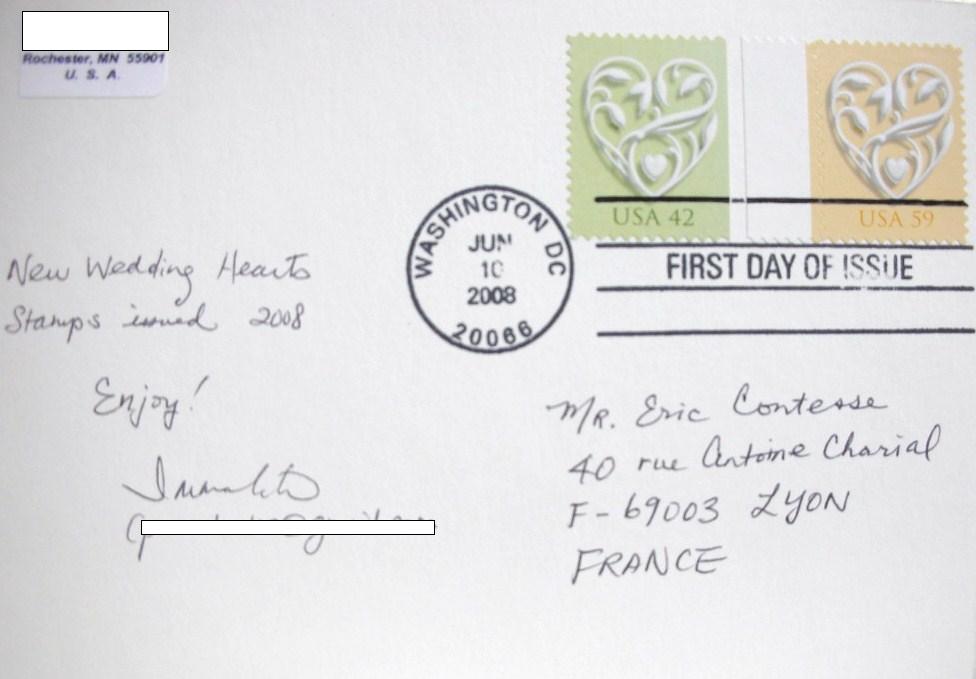 Rochester, MN 55901
U. S. A.
USA 42
USA 59
WASHINGTON DC
JUN
10
2008
20066
FIRST DAY OF ISSUE
New Wedding Hearts
Stamps issued 2008
Enjoy!
Mr. Eric Contesse
40 rue Antoine Charial
F-69003 LYON
FRANCE